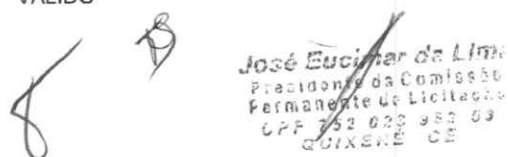 VÁLIDO
José Eucimar da Lima
Presidente da Comissão
Permanente de Licitação
CPF 752 023 953 03
QUIXERÉ CE